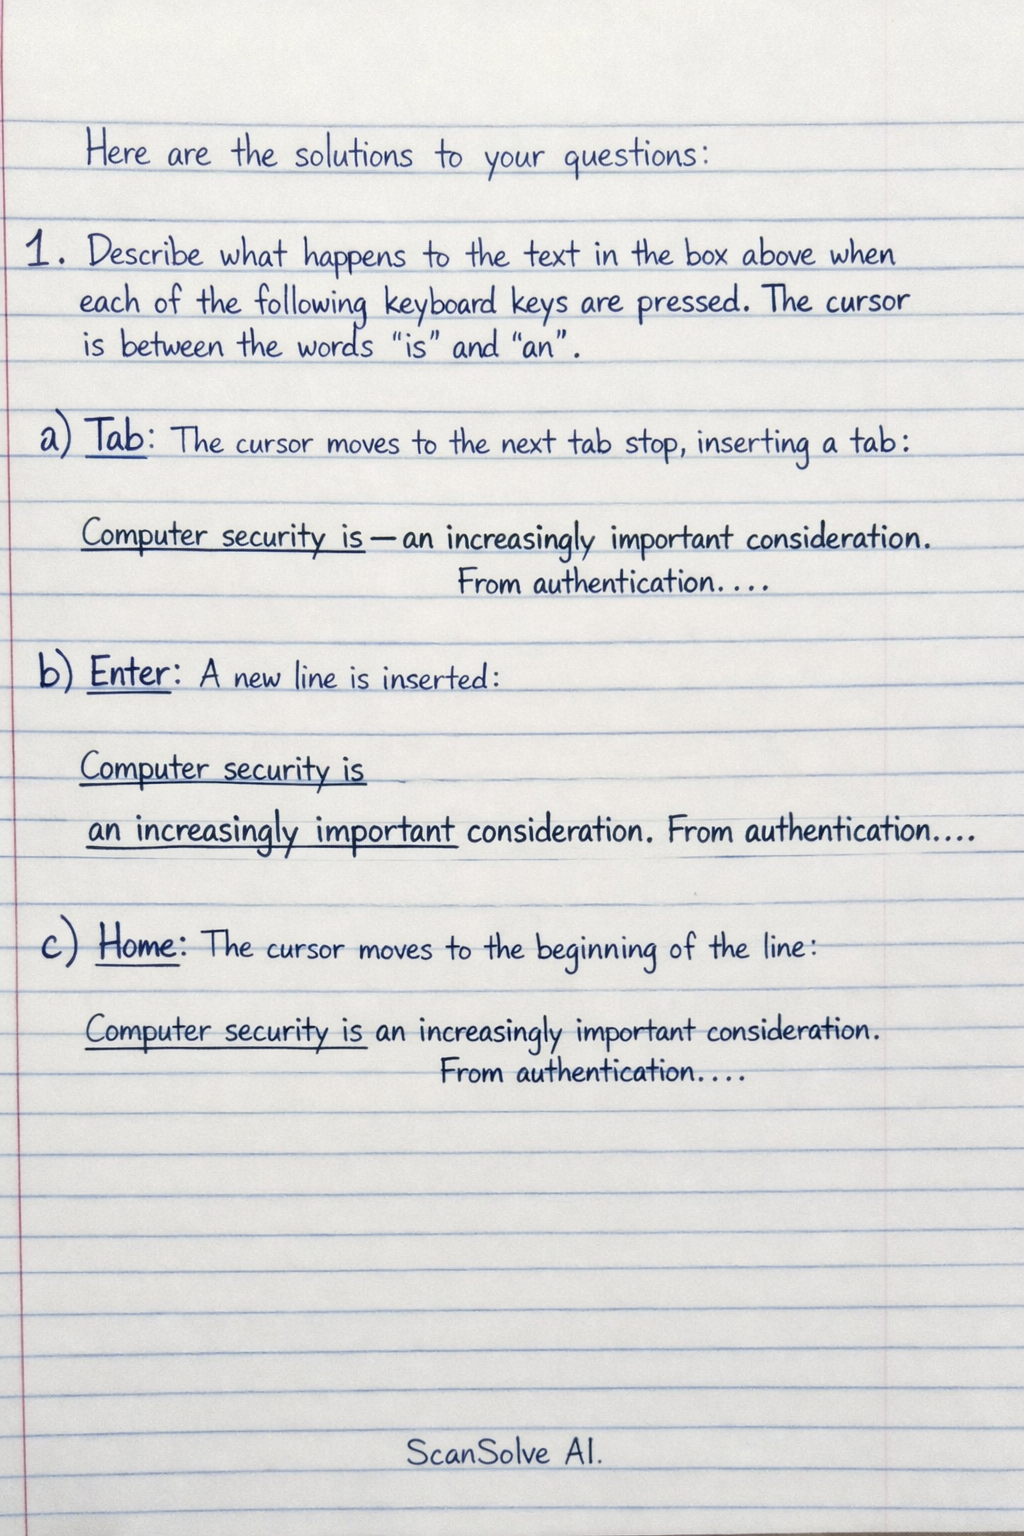 Here are the solutions to your questions:
1. Describe what happens to the text in the box above when
each of the following keyboard keys are pressed. The cursor
is between the words “is” and “an”.
a) Tab: The cursor moves to the next tab stop, inserting a tab:
Computer security is — an increasingly important consideration.
From authentication....
b) Enter: A new line is inserted:
Computer security is
an increasingly important consideration. From authentication....
c) Home: The cursor moves to the beginning of the line:
Computer security is an increasingly important consideration.
From authentication....
ScanSolve AI.